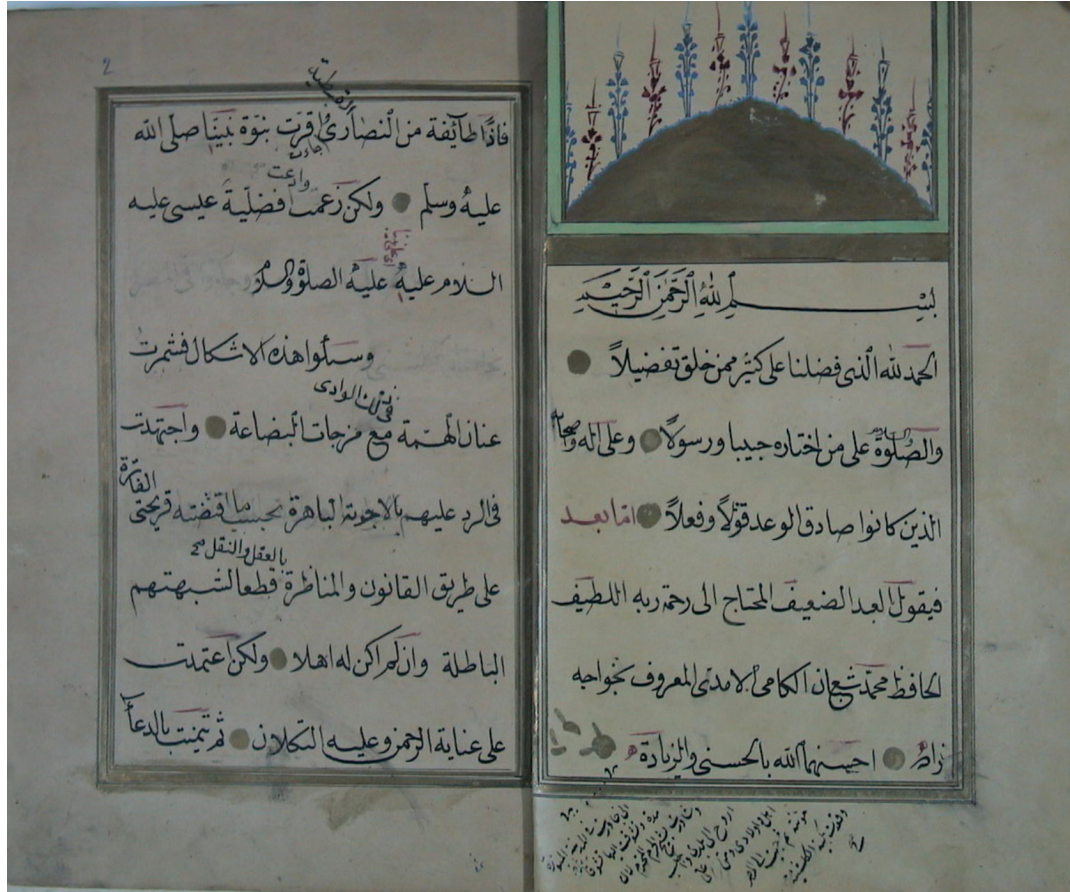 بسم الله الرحمن الرحيم
الحمد لله الذى فضلنا على كثير ممن خلق تفضيلاً
والصلوة والسلام على من اختاره حبيبا ورسولاً وعلى اله وصحابه
الذين كانوا صادق الوعد قولاً وفعلاً امّا بعد
فيقول العبد الضعيف المحتاج الى رحمة ربه اللطيف
الحافظ محمد شعبان الكامى الامدى المعروف بخواجه
زاده احسنهما الله بالحسنى والزيادة
2
فاذا طائفة من النصارى القبطية اقرت بنوة نبينا صلى الله
عليه وسلم ولكن زعمت وادعت افضلية عيسى عليه
السلام عليه عليه الصلوة والسلام
وسئلوا هذه الاشكال فشمرت
عنان الهمة مع مزجات البضاعة فى تلك الوادى واجتهدت
فى الرد عليهم بالاجوبة الباهرة بحسب ما اقتضته قريحتى الفاترة
على طريق القانون والمناظرة بالعقل والنقل صح قطعا لشبهتهم
الباطلة وان لم اكن له اهلا ولكن اعتمدت
على عناية الرحمن وعليه التكلان ثم تمنيت بالدعاء